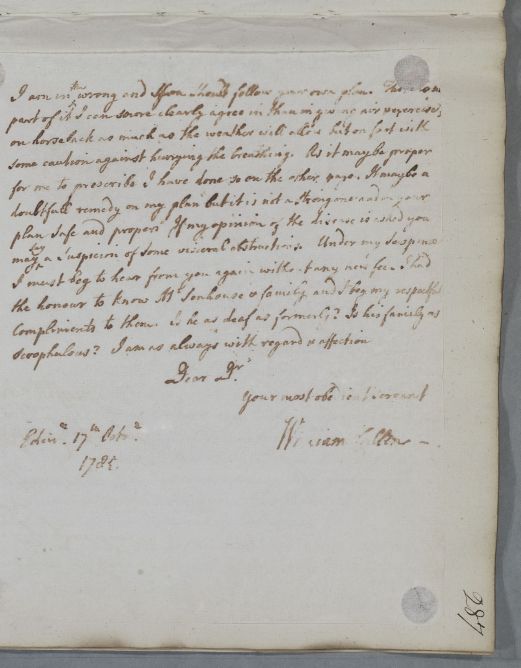 I am in the wrong and you should follow your own plan. There is no
part of it I can more clearly agree in than in giving air & exercise,
on horseback as much as the weather will allow but on foot with
some caution against hurrying the breathing. As it may be proper
for me to prescribe I have done so on the other page. It may be a
doubtfull remedy on my plan but it is not a strong one and on your
plan safe and proper. If my opinion of the disease is asked you
may say a Suspicion of some visceral obstructions. Under my Suspense
I must beg to hear from you again without any new fee. I had
the honour to know Mr. Senhouse & family and I beg my respectfull
Compliments to them. Is he as deaf as formerly? Is his family as
scrophulous? I am as always with regard & affection
Dear Dr.
Your most obedient Servant
William Cullen
Edinr. 17th Octr.
1785.
487